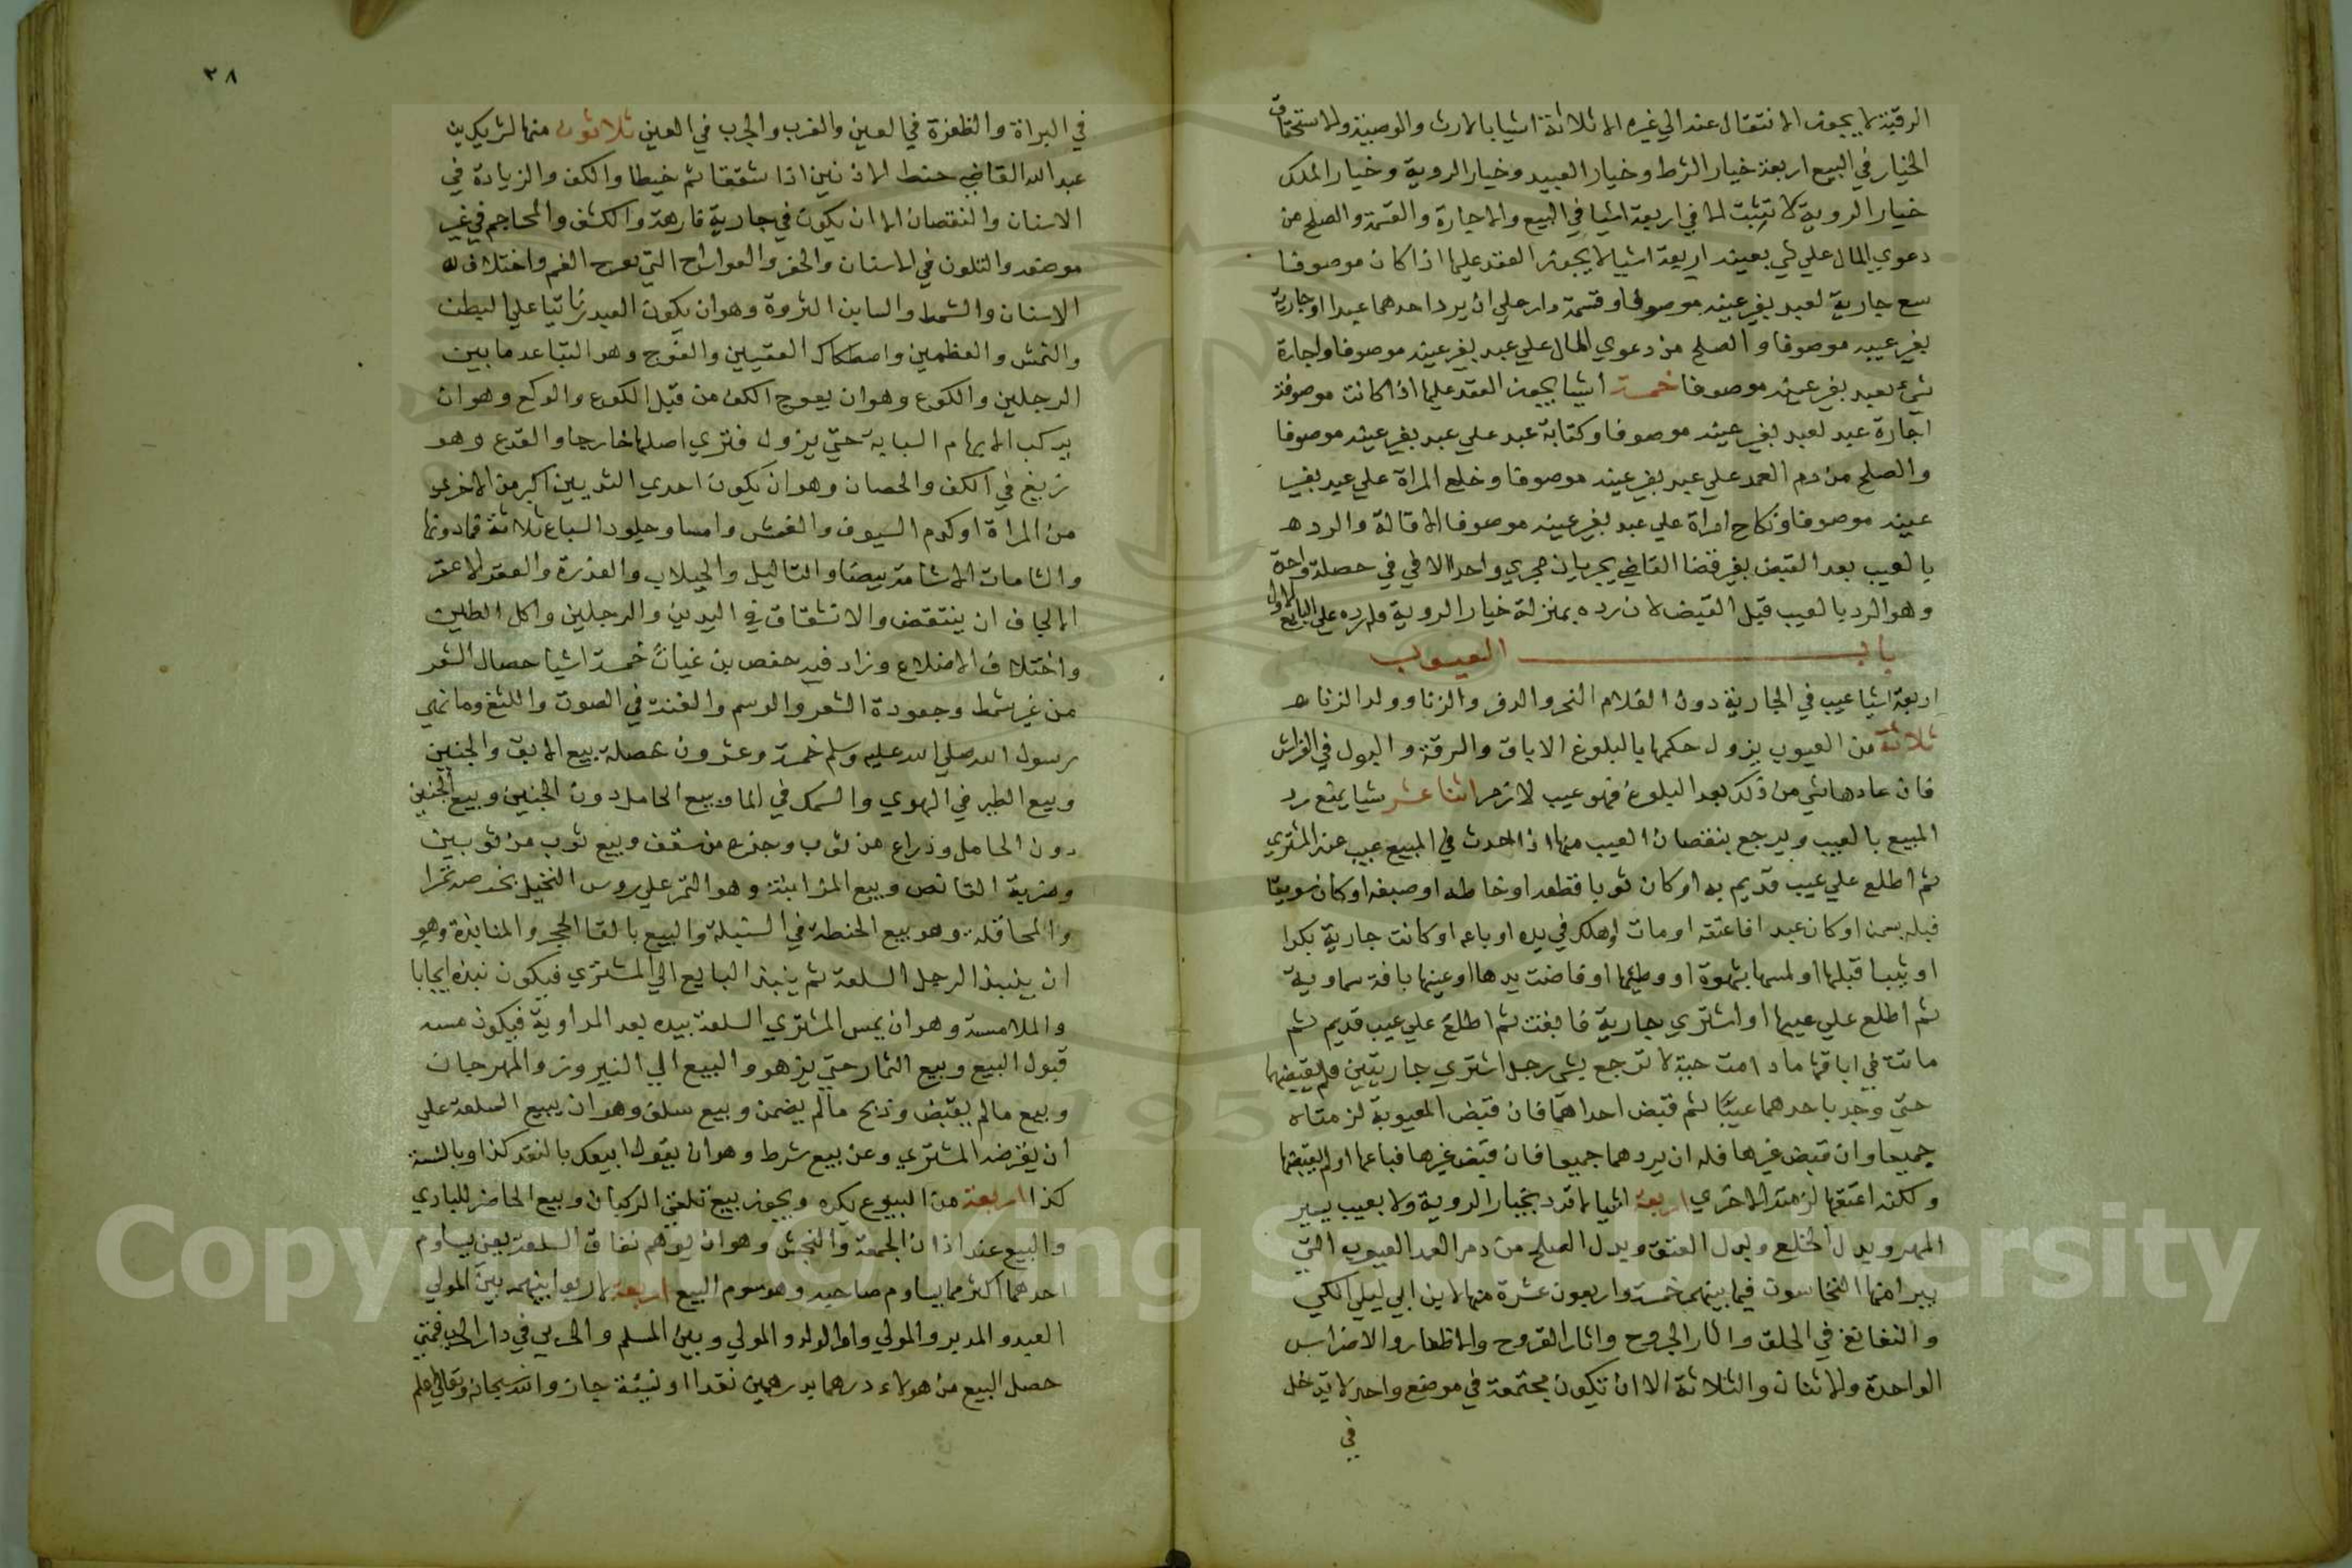 الرقبة لا يجوز الانتقال عنه الي غيره الا ثلاثة اشيا بالارث والوصية والاستحقاق
الخيار في البيع اربعة خيار الشرط وخيار العيب وخيار الروية وخيار الملك
خيار الروية لا تثبت الا في اربعة اشيا في البيع والاجارة والقسمة والصلح من
دعوي المال علي شي بعينه اربعة اشيا لا يجوز العقد عليها اذا كان موصوفا
بيع جارية لعبد بغير عينه موصوفا وقسمة دار علي ان يرد احدهما عبدا او جارية
بغير عينه موصوفا والصلح من دعوي المال علي عبد بغير عينه موصوفا واجارة
شيء بعبد بغير عينه موصوفا خمسة اشيا يجوز العقد عليها اذا كانت موصوفة
اجارة عبد لعبد بغير عينه موصوفا وكتابة عبد علي عبد بغير عينه موصوفا
والصلح من دم العمد علي عبد بغير عينه موصوفا وخلع المراة علي عبد بغير
عينه موصوفا ونكاح امراة علي عبد بغير عينه موصوفا الاقالة والرد
بالعيب بعد القبض بغير قضا القاضي يجريان مجري واحدا الا في خصلة واحدة
وهو الرد بالعيب قبل القبض لان رده بمنزلة خيار الروية فله رده علي البايع الاول
باب العيوب
اربعة اشيا عيب في الجارية دون الغلام البخر والدفر والزنا وولد الزنا
ثلاثة من العيوب يزول حكمها بالبلوغ الاباق والسرقة والبول في الفراش
فان عاد هاشي من ذلك بعد البلوغ فهو عيب لازم اثنا عشر شيا يمنع رد
المبيع بالعيب ويرجع بنقصان العيب منها اذا حدث في المبيع عيب عند المشتري
ثم اطلع علي عيب قديم به او كان ثوبا فقطعه او خاطه او صبغه او كان سويقا
فبله بسمن او كان عبدا فاعتقه او مات او هلك في يده او باعه او كانت جارية بكرا
او ثيبا قبلها او لمسها بشهوة او وطيها او فاضت يدها او عينها بافة سماوية
ثم اطلع علي عيبها او اشتري جارية فابقت ثم اطلع علي عيب قديم ثم
ماتت في اباقها ما دامت حية لا ترجع بشي رجل اشتري جاريتين فلم يقبضهما
حتي وجد باحدهما عيبا ثم قبض احداهما فان قبض المعيوبة لزمتاه
جميعا وان قبض غيرها فله ان يردهما جميعا فان قبض غيرها فباعها او لم يقبضها
ولكنه اعتقها لزمته الاخري اربعة اشيا لا ترد بخيار الروية ولا بعيب يسير
المهر وبدل الخلع وبدل العتق وبدل الصلح من دم العمد العيوب التي
يبرا منها النخاسون فيما بينهم خمسة واربعون عشرة منها لابن ابي ليلي الكي
والنغانغ في الحلق واثار الجروح واثار القروح والاظفار والاضراس
الواحدة والاثنان والثلاثة الا ان تكون مجتمعة في موضع واحد لا تدخل
في
٣٨
في البراة والظفرة في العين والغرب والجرب في العين ثلاثون منها لشريك بن
عبد الله القاضي خيط الاذنين اذا شققا ثم خيطا والكف والزيادة في
الاسنان والنقصان الا ان يكون في جارية فارهة والكشف والمحاجم في غير
موضعه والتلون في الاسنان والحفر والعوارض التي بعرج الفم واختلاف
الاسنان والشمط والساين الثروة وهو ان يكون العبد ناتيا علي البطن
والنمش والعظمين واصطكاك العقبين والفحج وهو التباعد ما بين
الرجلين والكوع وهو ان يعوج الكف من قبل الكوع والوكع وهو ان
يركب الابهام السبابة حتي يزول فتري اصلها خارجا والفدع وهو
زيغ في الكف والحصان وهو ان يكون احدي الثديين اكبر من الاخري
من المراة او كدم السيوف والغمش وامسا وجلود السباع ثلاثة فما دونها
والشامات الا شامة بيضا والثاليل والجبلاب والعذرة والعقد الاعتر
الا لجاف ان ينتقض والانشقاق في اليدين والرجلين واكل الطين
واختلاف الاضلاع وزاد فيه حفص بن غياث خمسة اشيا حصال الشعر
من غير شمط وجعودة الشعر والوسم والغنة في الصوت واللثغ وما نهي
رسول الله صلي الله عليه وسلم خمسة وعشرون خصلة بيع الابق والجنين
وبيع الطير في الهوي والسمك في الما وبيع الحامل دون الجنين وبيع الجنين
دون الحامل وذراع من ثوب وجذع من سقف وبيع ثوب من ثوبين
وضربة القانص وبيع المزابنة وهو الثمر علي روس النخيل بخرصه تمرا
والمحاقلة وهو بيع الحنطة في السنبلة والبيع بالقا الحجر والمنابذة وهو
ان ينبذ الرجل السلعة ثم ينبذ البايع الي المشتري فيكون نبذه ايجابا
والملامسة وهو ان يمس المشتري السلعة بيده بعد المراوية فيكون مسه
قبول البيع وبيع الثمار حتي يزهو والبيع الي النيروز والمهرجان
وبيع ما لم يقبض وربح ما لم يضمن وبيع سلف وهو ان يبيع السلعة علي
ان يقرضه المشتري وعن بيع شرط وهو ان يقول ابيعك بالنقد كذا وبالنسة
كذا اربعة من البيوع يكره ويجوز بيع تلقي الركبان وبيع الحاضر للبادي
والبيع عند اذان الجمعة والنجش وهو ان يوهم نفاق السلعة بعين يساوم
احدهما اكثر مما يساوم صاحبه وهو سوم البيع اربعة لا ربوا بينهم بين المولي
العبد والمدبر والمولي وام الولد والمولي وبين المسلم والحربي في دار الحرب فمتي
حصل البيع من هولاء درهما بدرهمين نقدا او نسيئة جاز والله سبحانه وتعالي اعلم
Copyright © King Saud University